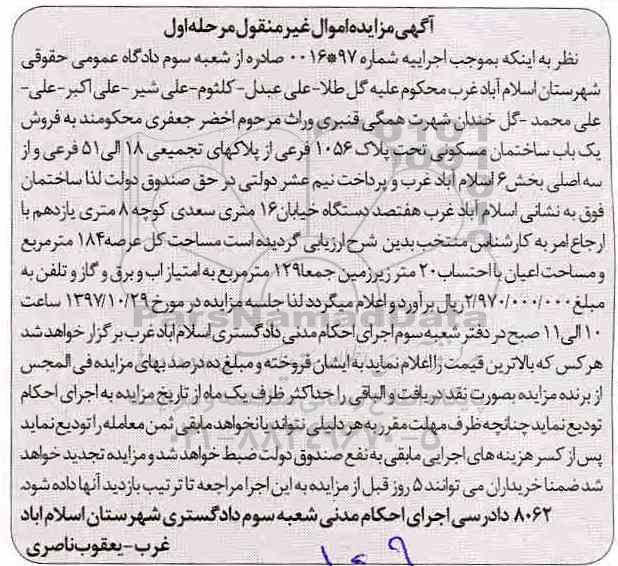 آگهی مزایده اموال غیر منقول مرحله اول
نظر به اینکه بموجب اجراییه شماره ۹۷*۰۰۱۶ صادره از شعبه سوم دادگاه عمومی حقوقی
شهرستان اسلام آباد غرب محکوم علبه گل طلا-علی عبدل- کلثوم-علی شیر -علی اکبر-علی-
علی محمد -گل خندان شهرت همگی قنبری وراث مرحوم اخضر جعفری محکومند به فروش
یک باب ساختمان مسکونی تحت پلاک ۱۰۵۶ فرعی از پلاکهای تجمیعی ۱۸ الی ۵۱ فرعی و از
سه اصلی بخش ۶ اسلام آباد غرب و پرداخت نیم عشر دولتی در حق صندوق دولت لذا ساختمان
فوق به نشانی اسلام آباد غرب هفتصد دستگاه خیابان ۱۶ متری سعدی کوچه ۸ متری یازدهم با
ارجاع امر به کارشناس منتخب بدین شرح ارزیابی گردیده است مساحت کل عرصه ۱۸۴ مترمربع
و مساحت اعیان با احتساب ۲۰ متر زیرزمین جمعا ۱۲۹ مترمربع به امتیاز اب و برق و گاز و تلفن به
مبلغ ۲/۹۷۰/۰۰۰/۰۰۰ ریال برآورد و اعلام میگردد لذا جلسه مزایده در مورخ ۱۳۹۷/۱۰/۲۹ ساعت
۱۰ الی ۱۱ صبح در دفتر شعبه سوم اجرای احکام مدنی دادگستری اسلام آباد غرب برگزار خواهد شد
هرکس که بالاترین قیمت را اعلام نماید به ایشان فروخته و مبلغ ده درصد بهای مزایده فی المجس
از برنده مزایده بصورت نقد دریافت و الباقی را حداکثر ظرف یک ماه از تاریخ مزایده به اجرای احکام
تودیع نماید چنانچه ظرف مهلت مقرر به هر دلیلی نتواند یا نخواهد مابقی ثمن معامله را تودیع نماید
پس از کسر هزینه های اجرایی مابقی به نفع صندوق دولت ضبط خواهد شد و مزایده تجدید خواهد
شد ضمنا خریداران می توانند ۵ روز قبل از مزایده به این اجرا مراجعه تا ترتیب بازدید آنها داده شود.
۸۰۶۲ دادرسی اجرای احکام مدنی شعبه سوم دادگستری شهرستان اسلام اباد
غرب-یعقوب ناصری
ParsNamadData
۰۲۱-۸۸۳۴۹۶۷۰-۵